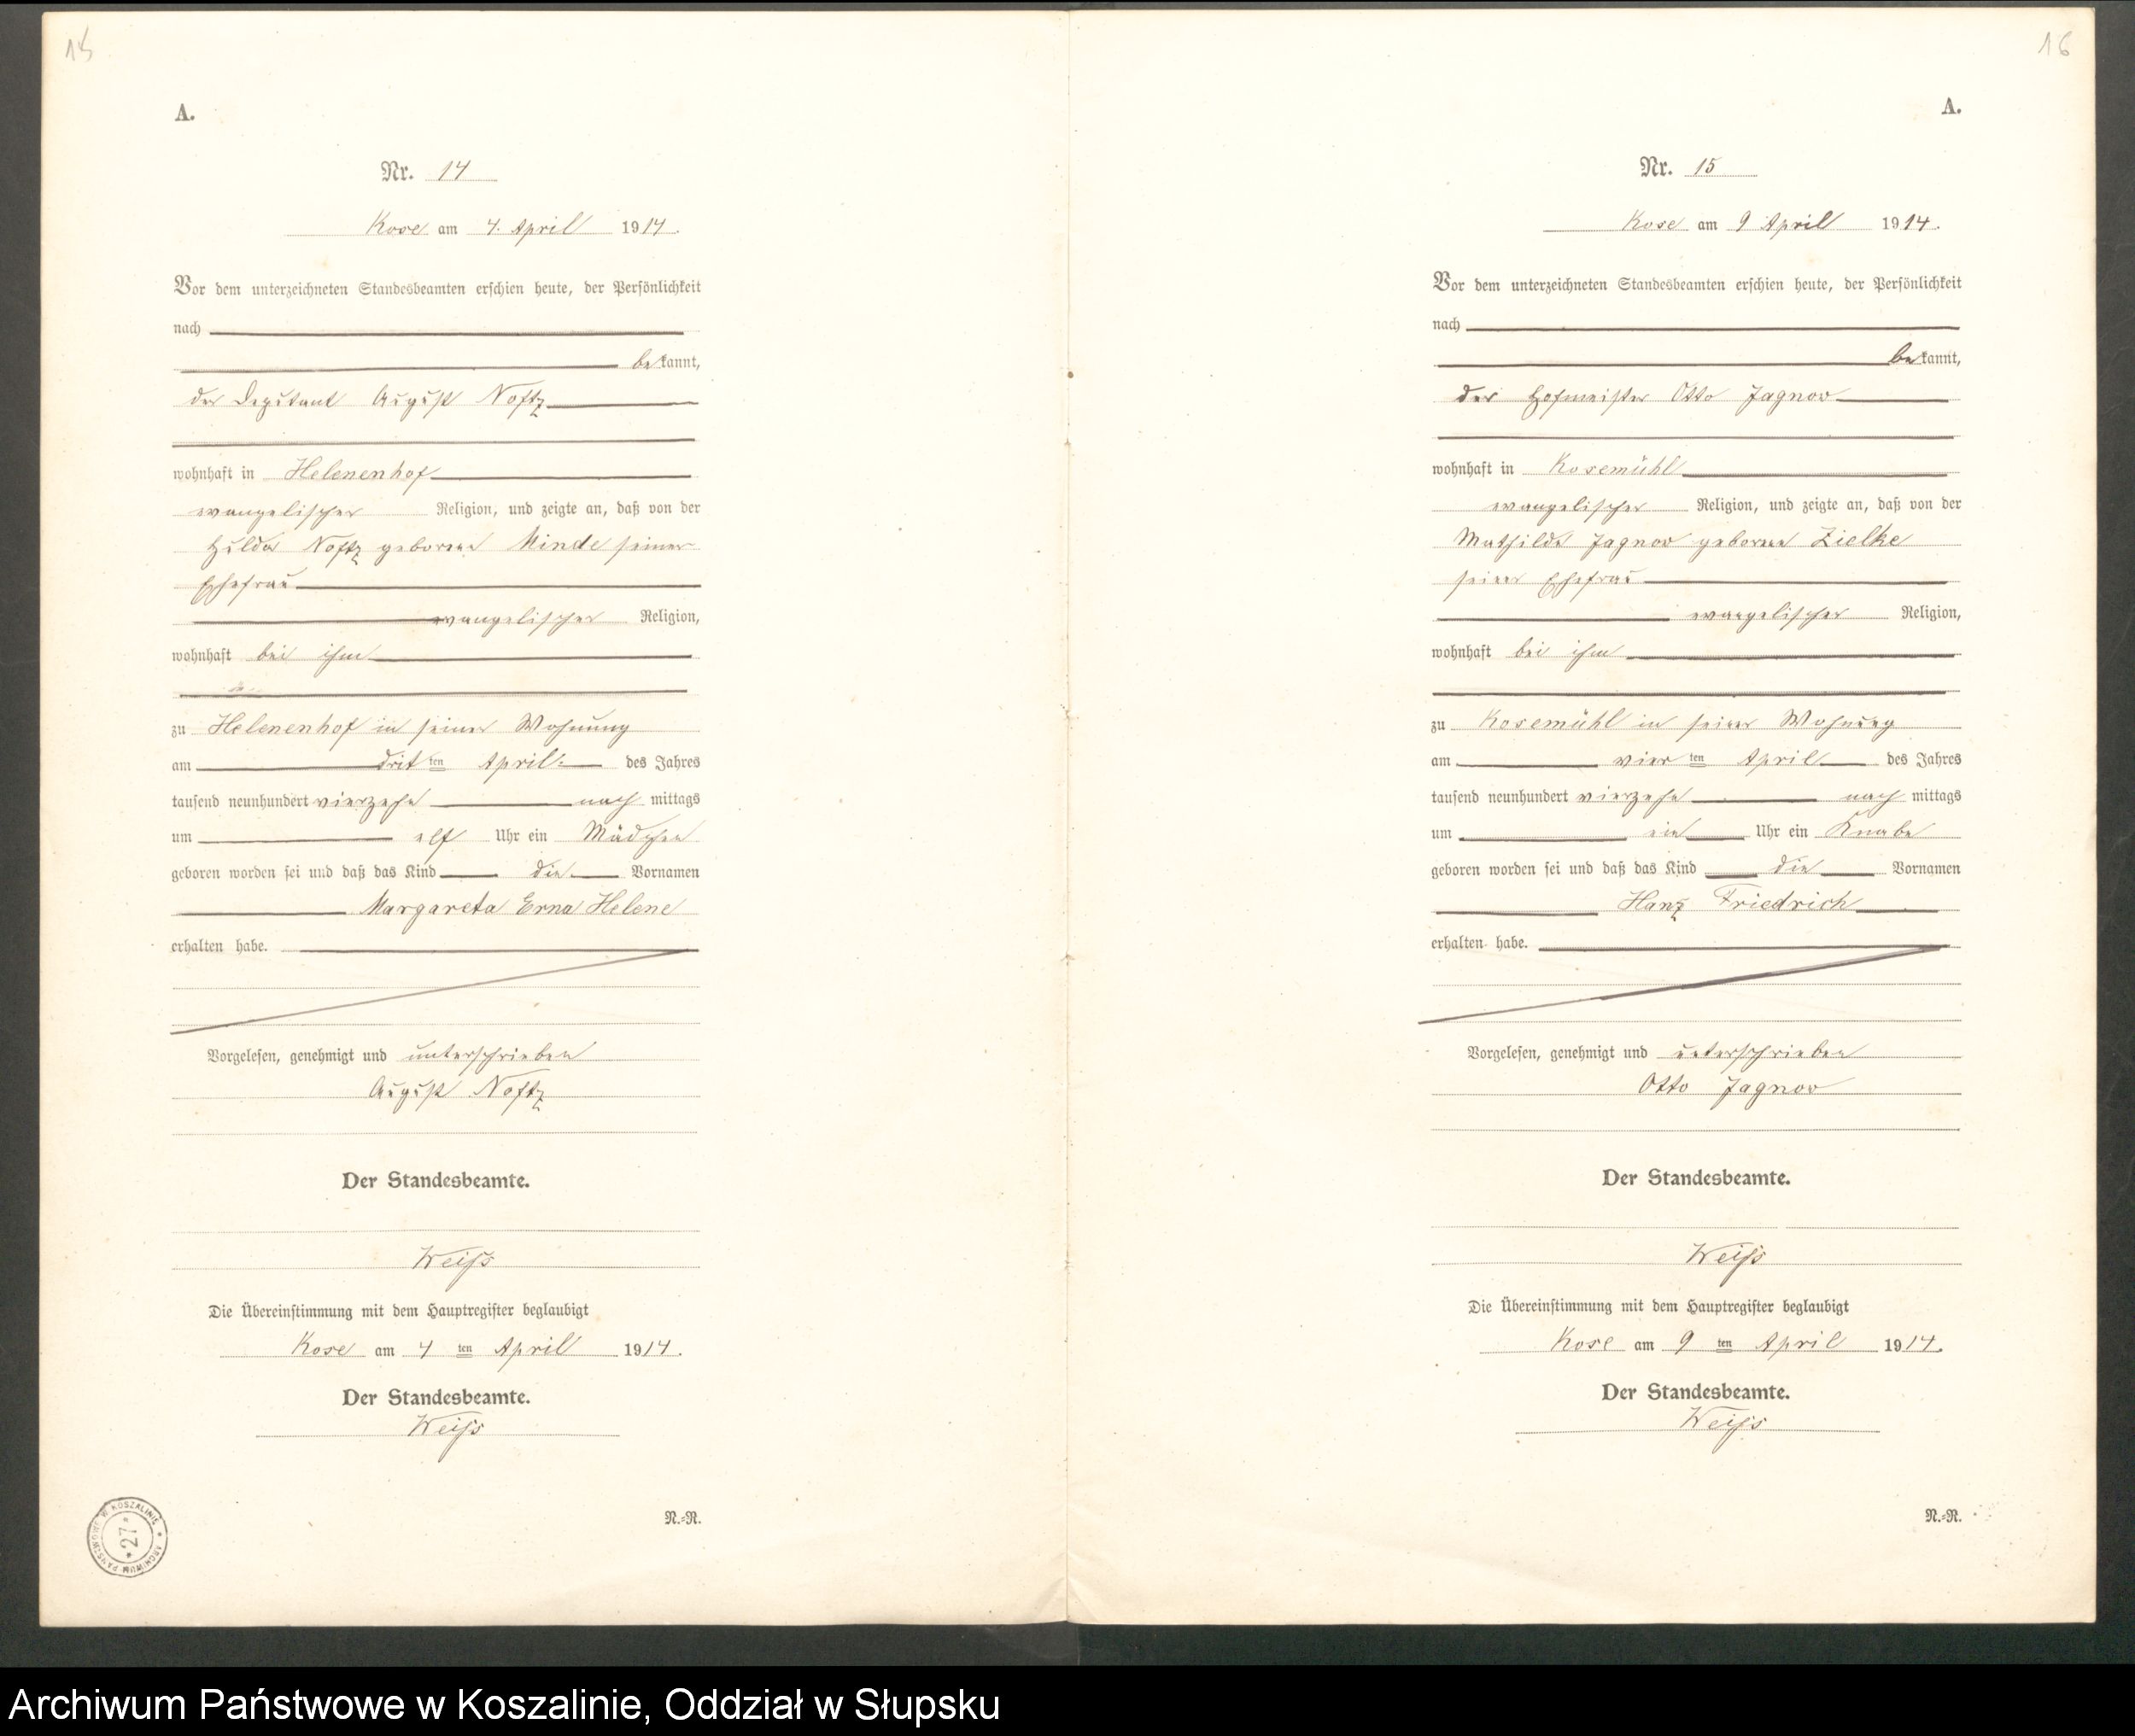 15
A.
Nr. 14
Kose am 4. April 1914.
Vor dem unterzeichneten Standesbeamten erschien heute, der Persönlichkeit
nach
bekannt,
der Deputant August Noftz
wohnhaft in Helenenhof
evangelischer Religion, und zeigte an, daß von der
Hulda Noftz geborene Minde seiner
Ehefrau
evangelischer Religion,
wohnhaft bei ihm
zu Helenenhof in seiner Wohnung
am dritten April des Jahres
tausend neunhundert vierzehn nachmittags
um elf Uhr ein Mädchen
geboren worden sei und daß das Kind die Vornamen
Margareta Erna Helene
erhalten habe.
Vorgelesen, genehmigt und unterschrieben
August Noftz
Der Standesbeamte.
Weiss
Die Übereinstimmung mit dem Hauptregister beglaubigt
Kose am 4 ten April 1914.
Der Standesbeamte.
Weiss
N.=N.
ARCHIWUM PAŃSTWOWE W KOSZALINIE
* 27 *
16
A.
Nr. 15
Kose am 9 April 1914.
Vor dem unterzeichneten Standesbeamten erschien heute, der Persönlichkeit
nach
bekannt,
der Hofmeister Otto Jagnow
wohnhaft in Kosemühl
evangelischer Religion, und zeigte an, daß von der
Mathilde Jagnow geborene Zielke
seiner Ehefrau
evangelischer Religion,
wohnhaft bei ihm
zu Kosemühl in seiner Wohnung
am vierten April des Jahres
tausend neunhundert vierzehn nachmittags
um ein Uhr ein Knabe
geboren worden sei und daß das Kind die Vornamen
Hanz Friedrich
erhalten habe.
Vorgelesen, genehmigt und unterschrieben
Otto Jagnow
Der Standesbeamte.
Weiss
Die Übereinstimmung mit dem Hauptregister beglaubigt
Kose am 9 ten April 1914.
Der Standesbeamte.
Weiss
N.=N.
Archiwum Państwowe w Koszalinie, Oddział w Słupsku